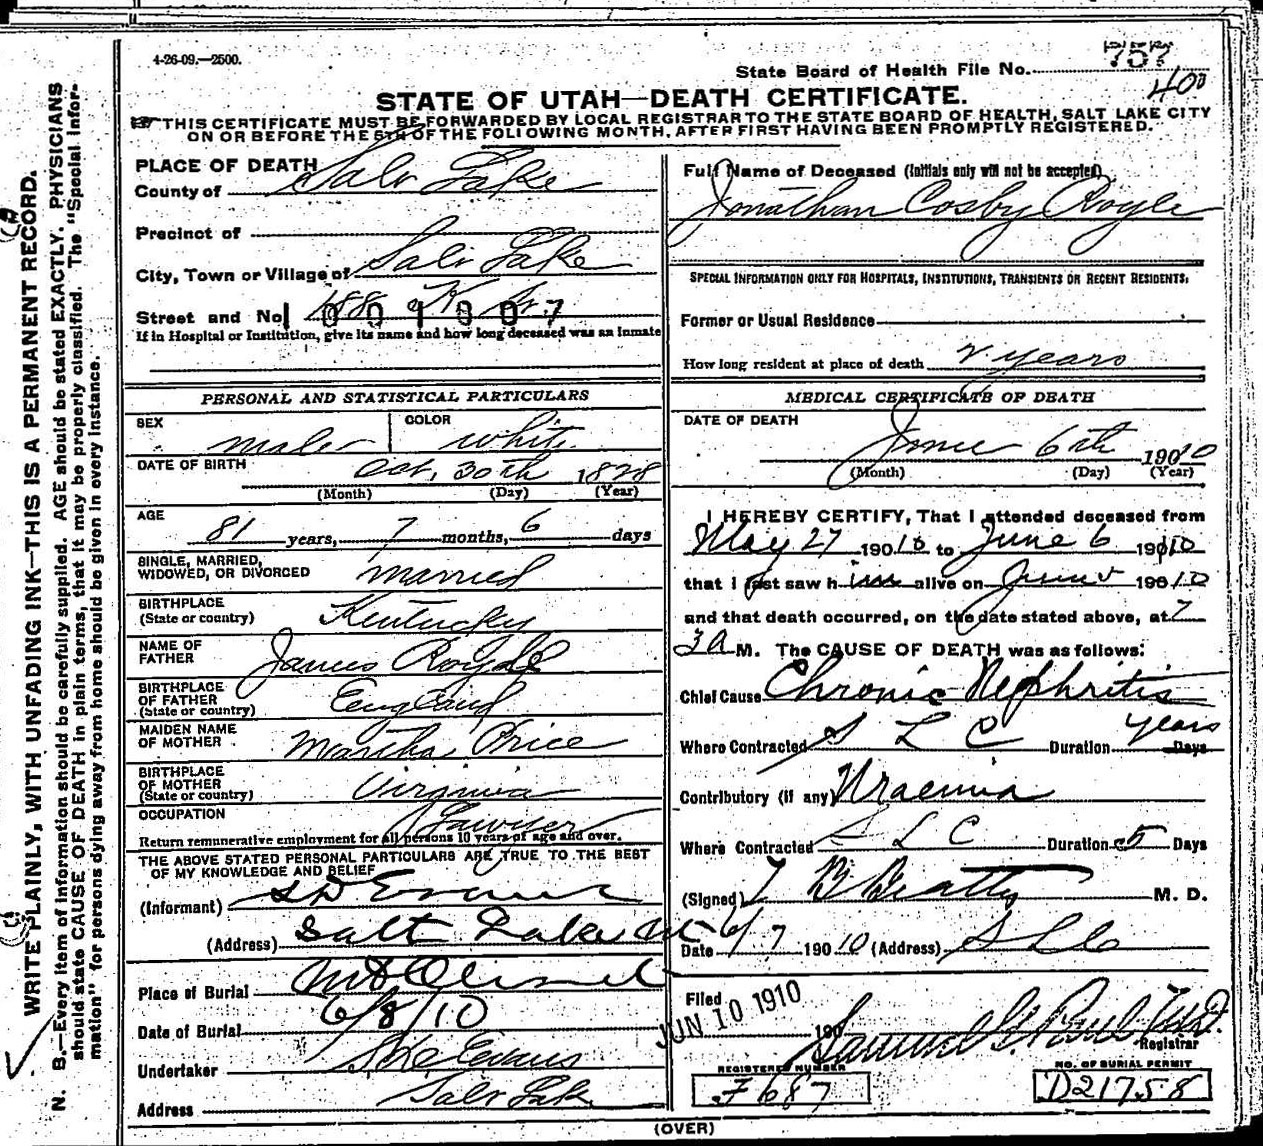 4-26-09.—2500.
757
State Board of Health File No.
400
STATE OF UTAH—DEATH CERTIFICATE.
THIS CERTIFICATE MUST BE FORWARDED BY LOCAL REGISTRAR TO THE STATE BOARD OF HEALTH, SALT LAKE CITY
ON OR BEFORE THE 5TH OF THE FOLLOWING MONTH, AFTER FIRST HAVING BEEN PROMPTLY REGISTERED.
WRITE PLAINLY, WITH UNFADING INK—THIS IS A PERMANENT RECORD.
N. B.—Every item of information should be carefully supplied. AGE should be stated EXACTLY. PHYSICIANS
should state CAUSE OF DEATH in plain terms, that it may be properly classified. The "Special Infor-
mation" for persons dying away from home should be given in every instance.
PLACE OF DEATH
County of Salt Lake
Precinct of
City, Town or Village of Salt Lake
Street and No. 188 K St.
If in Hospital or Institution, give its name and how long deceased was an inmate
PERSONAL AND STATISTICAL PARTICULARS
SEX male COLOR white
DATE OF BIRTH Oct, 30th 1828
(Month) (Day) (Year)
AGE 81 years, 7 months, 6 days
SINGLE, MARRIED,
WIDOWED, OR DIVORCED married
BIRTHPLACE
(State or country) Kentucky
NAME OF
FATHER James Royle
BIRTHPLACE
OF FATHER
(State or country) England
MAIDEN NAME
OF MOTHER Martha Price
BIRTHPLACE
OF MOTHER
(State or country) Virginia
OCCUPATION Lawyer
Return remunerative employment for all persons 10 years of age and over.
THE ABOVE STATED PERSONAL PARTICULARS ARE TRUE TO THE BEST
OF MY KNOWLEDGE AND BELIEF
(Informant) S D Evans
(Address) Salt Lake Ut
Place of Burial Mt Olivet
Date of Burial 6/8/10
Undertaker S. D. Evans
Address Salt Lake
Full Name of Deceased (Initials only will not be accepted)
Jonathan Cosby Royle
SPECIAL INFORMATION ONLY FOR HOSPITALS, INSTITUTIONS, TRANSIENTS OR RECENT RESIDENTS.
Former or Usual Residence
How long resident at place of death years
MEDICAL CERTIFICATE OF DEATH
DATE OF DEATH
June 6th 1910
(Month) (Day) (Year)
I HEREBY CERTIFY, That I attended deceased from
May 27 1910 to June 6 1910
that I last saw him alive on June 1910
and that death occurred, on the date stated above, at 7
30 M. The CAUSE OF DEATH was as follows:
Chief Cause Chronic Nephritis
Where Contracted S L C Duration years Days
Contributory (if any) Uraemia
Where Contracted S L C Duration 5 Days
(Signed) Beatty M. D.
Date 6/7 1910 (Address) S L C
Filed JUN 10 1910 190
Samuel G. Paul M.D.
Registrar
REGISTERED NUMBER
7687
NO. OF BURIAL PERMIT
D21758
(OVER)